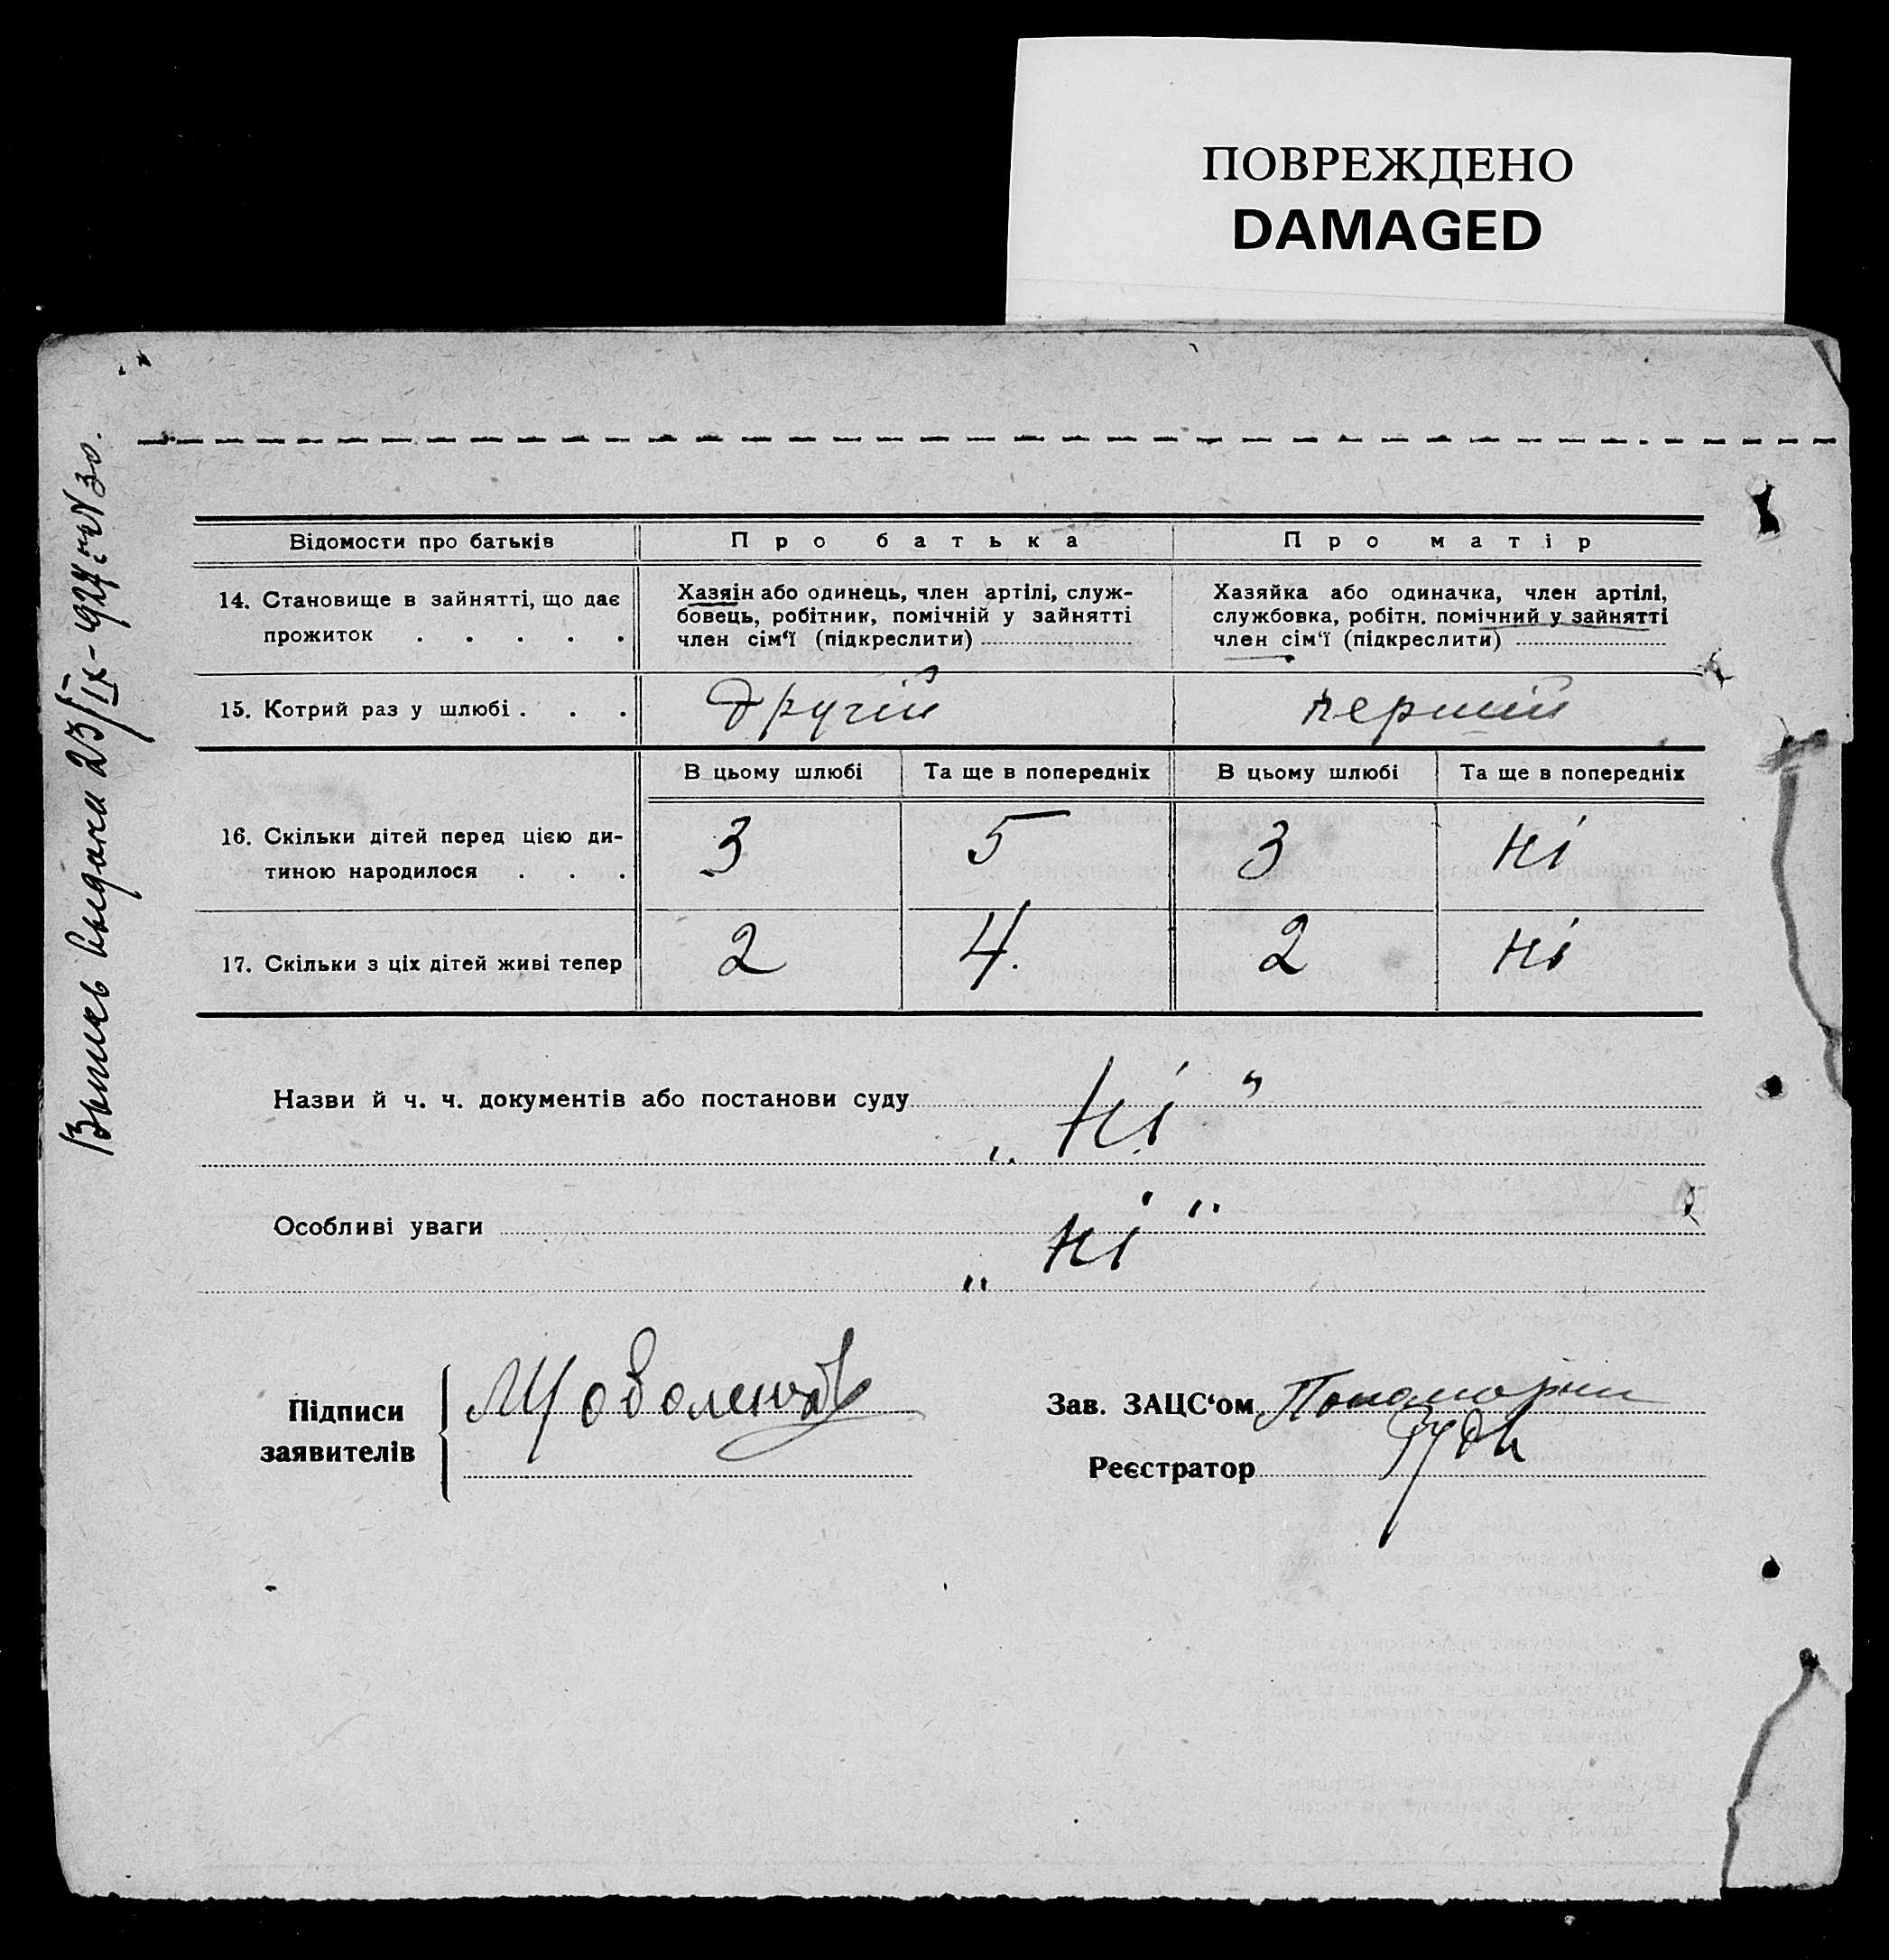 ПОВРЕЖДЕНО
DAMAGED
Выпись выдана 23/IX-1927 г. №30.
Відомости про батьків
Про батька
Про матір
14. Становище в зайнятті, що дає
прожиток . . . . .
Хазяін або одинець, член артілі, служ-
бовець, робітник, помічній у зайнятті
член сім‘ї (підкреслити)
Хазяйка або одиначка, член артілі,
службовка, робітн. помічний у зайнятті
член сім‘ї (підкреслити)
15. Котрий раз у шлюбі . . .
другій
первий
В цьому шлюбі
Та ще в попередніх
В цьому шлюбі
Та ще в попередніх
16. Скільки дітей перед цією ди-
тиною народилося . . .
3
5
3
ні
17. Скільки з ціх дітей живі тепер
2
4.
2
ні
Назви й ч. ч. документів або постанови суду
„ ні “
Особливі уваги
„ ні “
Підписи
заявителів
Зав. ЗАЦС‘ом
Реєстратор